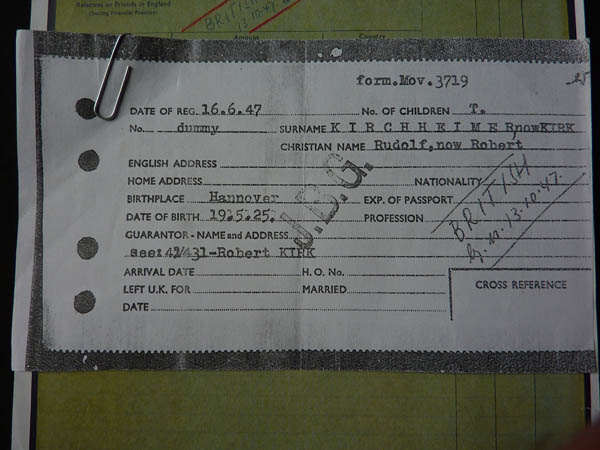 Relations or Friends in England
(Stating Financial Position)
BRITISH
13.10.47.
Amount
Country
form.Mov.3719
DATE OF REG. 16.6.47 No. OF CHILDREN T.
No. dummy SURNAME KIRCHHEIMER,nowKIRK
CHRISTIAN NAME Rudolf,now Robert
ENGLISH ADDRESS
HOME ADDRESS NATIONALITY
BIRTHPLACE Hannover EXP. OF PASSPORT
DATE OF BIRTH 19.5.25. PROFESSION
BRITISH
13.10.47.
J.B.G.
GUARANTOR - NAME and ADDRESS
seet42/431-Robert KIRK
ARRIVAL DATE H. O. No.
LEFT U.K. FOR MARRIED
DATE
CROSS REFERENCE